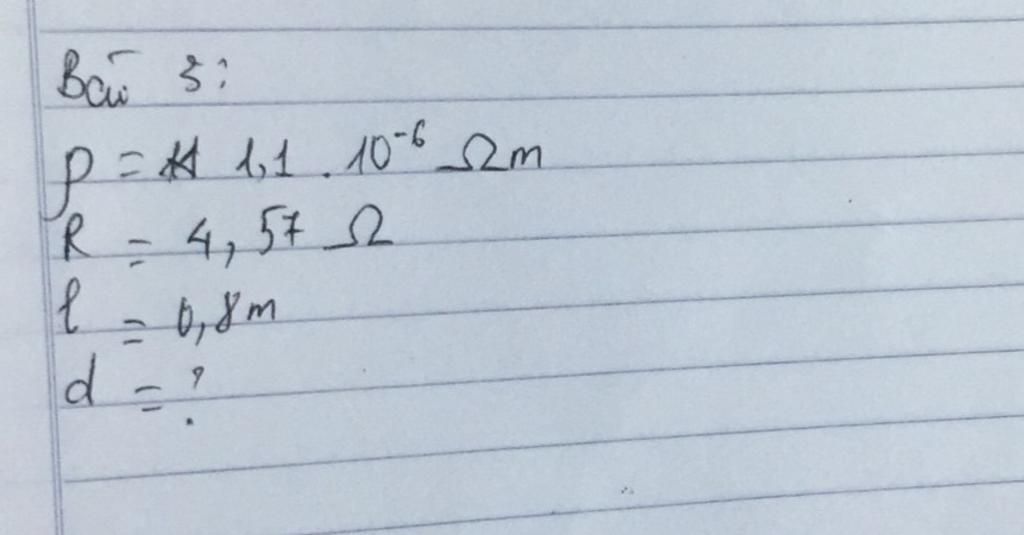 Bài 3:
ρ = 1,1 . 10⁻⁶ Ωm
R = 4,57 Ω
l = 0,8m
d = ?